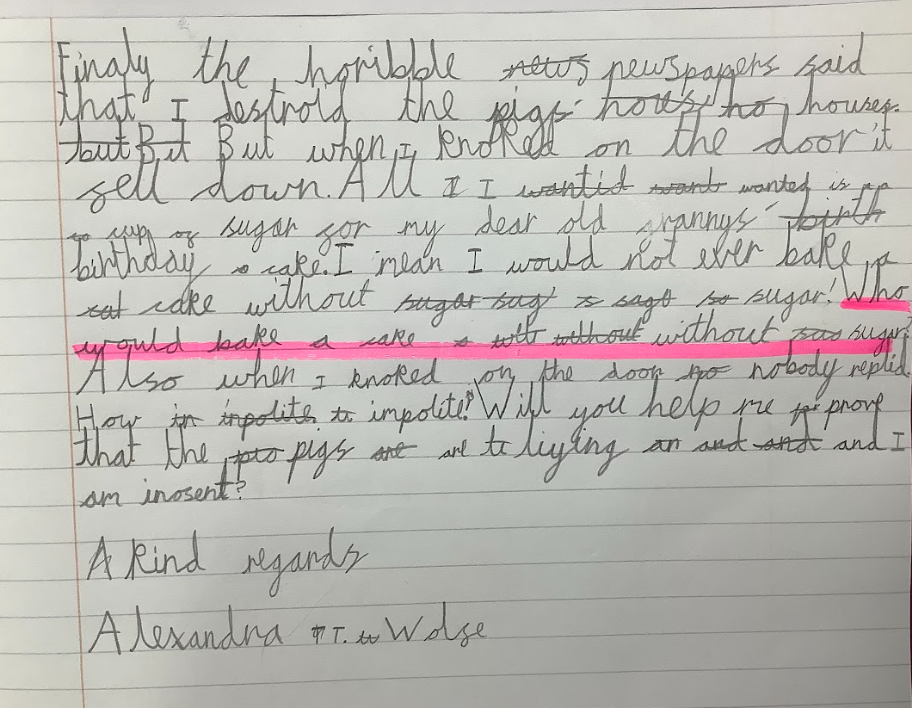 Finaly the horibble news newspapers said
that I destroid the pigs hous ho houses.
but But But when I knoked on the door it
fell down. All I I wantid want wanted is a
cup of sugar for my dear old grannys birth
birthday cake. I mean I would not ever bake a
cat cake without sugar sug s sago so sugar! Who
would bake a cake with without without sugar?
Also when I knoked on the door no nobody replid.
How in inpolite to impolite! Will you help me prove
that the pigs are are liying an and and and I
am inosent?
A kind regards
Alexandra T. Wolfe